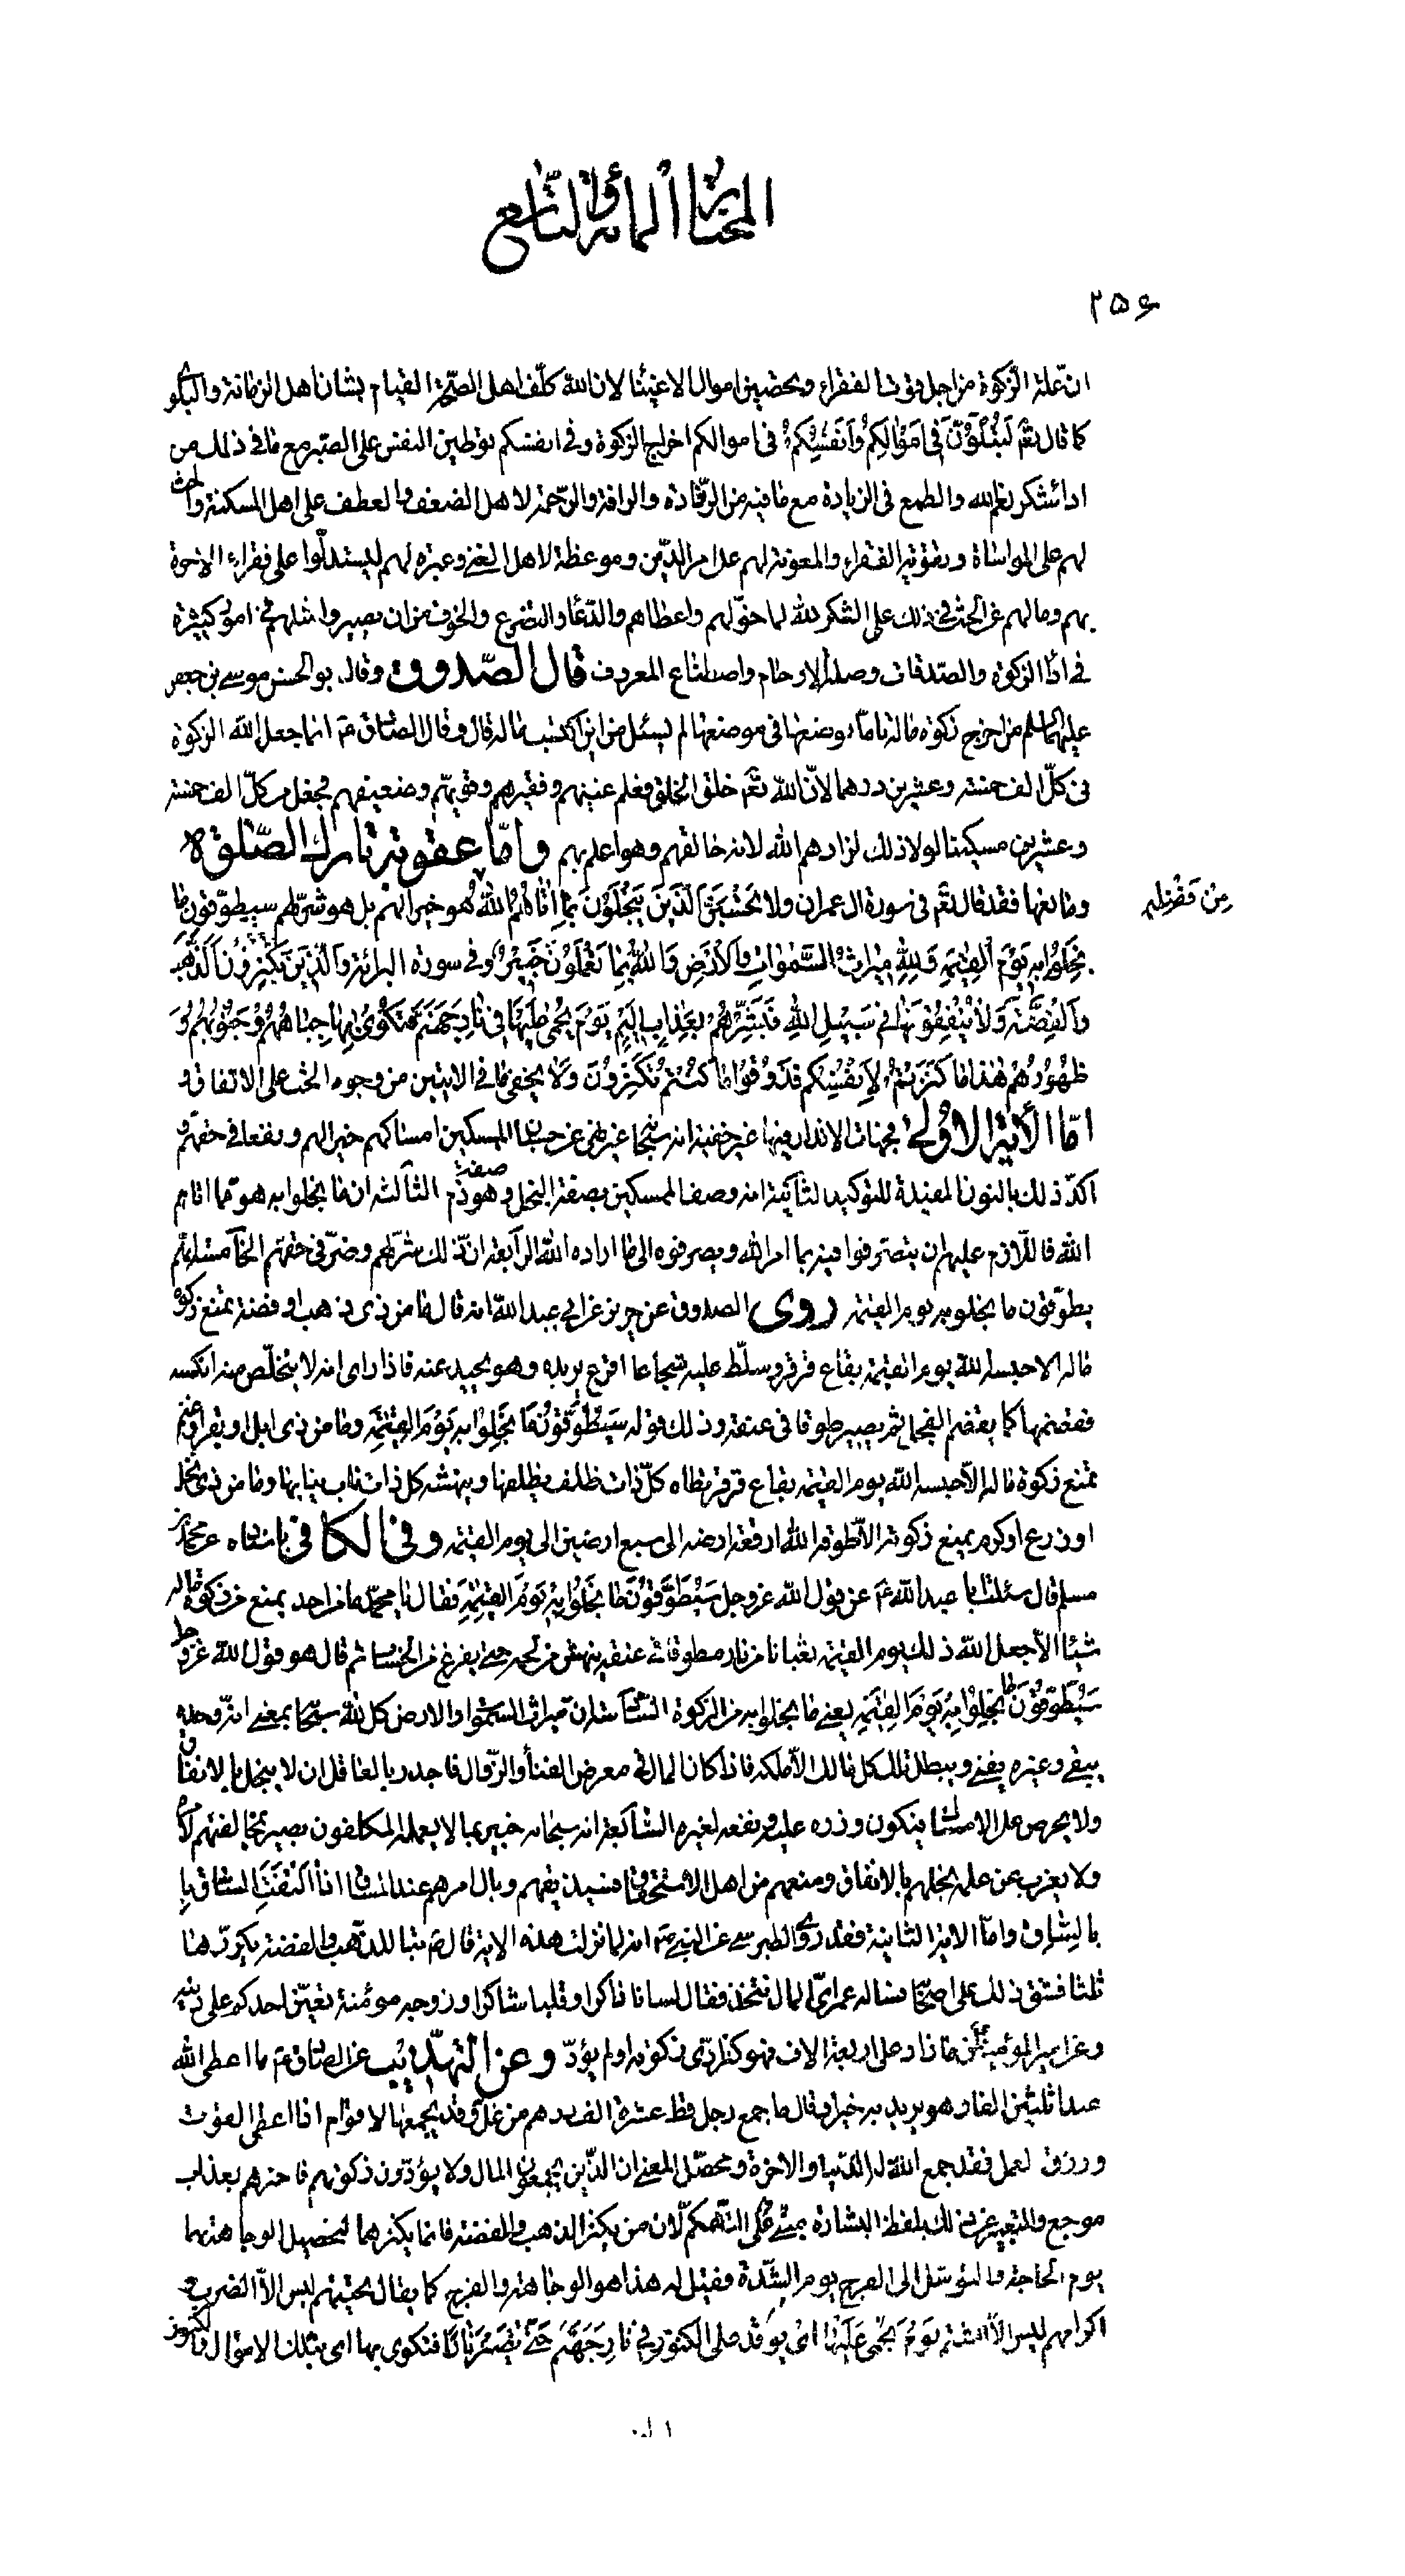 المختار المأة والتاسع
٢٥٦
ان علة الزكوة من اجل قوت الفقراء وتحصين اموال الاغنيا لان الله كلف اهل الصحة القيام بشان اهل الزمانة والبلوى
كما قال تعم لَتُبْلَوُنَّ فِي اَمْوالِكُمْ وَاَنْفُسِكُمْ في اموالكم اخراج الزكوة وفي انفسكم توطين النفس على الصبر مع ما في ذلك من
اداء شكر نعم الله والطمع في الزيادة مع ما فيه من الزيادة والرافة والرحمة لاهل الضعف والعطف على اهل المسكنة والحث
لهم على المواساة وتقوية الفقراء والمعونة لهم على امر الدين وموعظة لاهل الغنى وعبرة لهم ليستدلوا على فقراء الاخرة
بهم ومالهم من الحث في ذلك على الشكر لله لما خولهم واعطاهم والدعاء والتضرع والخوف من ان يصيروا مثلهم في امور كثيرة
في اداء الزكوة والصدقات وصلة الارحام واصطناع المعروف قال الصدوق وقال ابو الحسن موسى بن جعفر
عليهما السلم من اخرج زكوة ماله تاما فوضعها في موضعها لم يسئل من اين اكتسب ماله قال وقال الصادق ع انما جعل الله الزكوة
في كل الف خمسة وعشرين درهما لان الله تعم خلق الخلق فعلم غنيهم وفقيرهم وقويهم وضعيفهم فجعل من كل الف خمسة
وعشرين مسكينا لولا ذلك لزادهم الله لانه خالقهم وهو اعلم بهم واما عقوبة تارك الصلوة
ومانعها فقد قال تعم في سورة ال عمران ولا يَحْسَبَنَّ الَّذينَ يَبْخَلُونَ بِما اتاهُمُ اللهُ هو خيرا لهم بل هو شر لهم سيطوقون ما
مِنْ فَضْلِهِ
بَخِلُوا بِهِ يَوْمَ الْقِيمَةِ وَلِلّهِ ميراثُ السَّمواتِ وَالْاَرْضِ وَاللهُ بِما تَعْمَلُونَ خَبيرٌ وفي سورة البرائة وَالَّذينَ يَكْنِزُونَ الذَّهَبَ
وَالْفِضَّةَ وَلا يُنْفِقُونَها في سَبيلِ اللهِ فَبَشِّرْهُمْ بِعَذابٍ اَليمٍ يَوْمَ يُحْمى عَلَيْها في نارِ جَهَنَّمَ فَتُكْوى بِها جِباهُهُمْ وَجُنُوبُهُمْ وَ
ظُهُورُهُمْ هذا ما كَنَزْتُمْ لِاَنْفُسِكُمْ فَذُوقُوا ما كُنْتُمْ تَكْنِزُونَ ولا يخفى ما في الايتين من وجوه الحث على الانفاق و
اما الاية الاولى فجهات الانذار فيها غير خفية انه سبحانه نهى عن حسبان الممسكين امساكهم خيرا لهم ونفعا في حقهم و
اكد ذلك بالنون المفيدة للتوكيد الثانية انه وصف الممسكين بصفة البخل وهو صفة ذم الثالثة ان ما بخلوا به هو مما اتاهم
الله فاللازم عليهم ان يتصرفوا فيه بما امر الله ويصرفوه الى ما اراده الله الرابعة ان ذلك شر لهم وضر في حقهم الخامسة انهم
يطوقون ما بخلوا به يوم القيمة روى الصدوق عن حريز عن ابي عبد الله انه قال ما من ذي ذهب او فضة يمنع زكوة
ماله الا حبسه الله يوم القيمة بقاع قرقر وسلط عليه شجاعا اقرع يريده وهو يحيد عنه فاذا راى انه لا يتخلص منه امكنه
فقضمها كما يقضم الفجل ثم يصير طوقا في عنقه وذلك قوله سَيُطَوَّقُونَ ما بَخِلُوا بِهِ يَوْمَ الْقِيمَةِ وما من ذي ابل او بقر او غنم
يمنع زكوة ماله الا حبسه الله يوم القيمة بقاع قرقر تطاه كل ذات ظلف بظلفها وينهشه كل ذات ناب بنابها وما من ذي نخل
او زرع او كرم يمنع زكوته الا طوقه الله ارفعة ارضه الى سبع ارضين الى يوم القيمة وفي الكافي باسناده عن محمد بن
مسلم قال سئلت ابا عبد الله ع عن قول الله عز وجل سَيُطَوَّقُونَ ما بَخِلُوا بِهِ يَوْمَ الْقِيمَةِ فقال يا محمد ما من احد يمنع من زكوة ماله
شيئا الا جعل الله ذلك يوم القيمة ثعبانا من نار مطوقا في عنقه ينهش من لحمه حتى يفرغ من الحساب ثم قال هو قول الله عز وجل
سَيُطَوَّقُونَ ما بَخِلُوا بِهِ يَوْمَ الْقِيمَةِ يعني ما بخلوا به من الزكوة السادسة ان ميراث السموات والارض كل لله سبحانه بمعنى انه وحده
يبقى وغيره يفنى ويبطل تلك كل مالك الا ملكه فاذا كان المال في معرض الفناء والزوال فاجدر بالعاقل ان لا يبخل بالانفاق
ولا يحرص على الامساك فيكون وزره عليه ونفعه لغيره السابعة انه سبحانه خبير بما لا يعمله المكلفون بصير بمخالفتهم
ولا يعزب عن علمه بخلهم بالانفاق ومنعهم من اهل الاستحقاق فسيذيقهم وبال امرهم عند المساق اذا التفت الساق
بالساق واما الاية الثانية فقد روى الطبرسي عن النبي ص انه لما نزلت هذه الاية قال ص تبا للذهب والفضة يكررها
ثلثا فشق ذلك على اصحابه فساله عمر اي المال نتخذ فقال لسانا ذاكرا وقلبا شاكرا وزوجة مؤمنة تعين احدكم على دينه
وعن امير المؤمنين ما زاد على اربعة الاف فهو كنز ادى زكوته او لم يؤد وعن التهذيب عن الصادق ع ما اعطى الله
عبدا ثلثين الفا وهو يريد به خيرا وقال ما جمع رجل قط عشرة الف درهم من حل وقد يجمعها لاقوام اذا اعطى القوت
ورزق العمل فقد جمع الله له الدنيا والاخرة ومحصل المعنى ان الذين يجمعون المال ولا يؤدون زكوتهم فاخبرهم بعذاب
موجع والتعبير عن ذلك بلفظ البشارة مبني على التهكم لان من يكنز الذهب والفضة فانما يكنزهما لتحصيل الوجاهة بهما
يوم الحاجة والتوسل الى الفرج يوم الشدة فقيل له هذا هو الوجاهة والفرج كما يقال تحيتهم ليس الا الضرب و
اكرامهم ليس الا الشتم يَوْمَ يُحْمى عَلَيْها اى يوقد على الكنوز في نارِ جَهَنَّمَ حتى تصير نارا فتكوى بها اى بتلك الاموال والكنوز